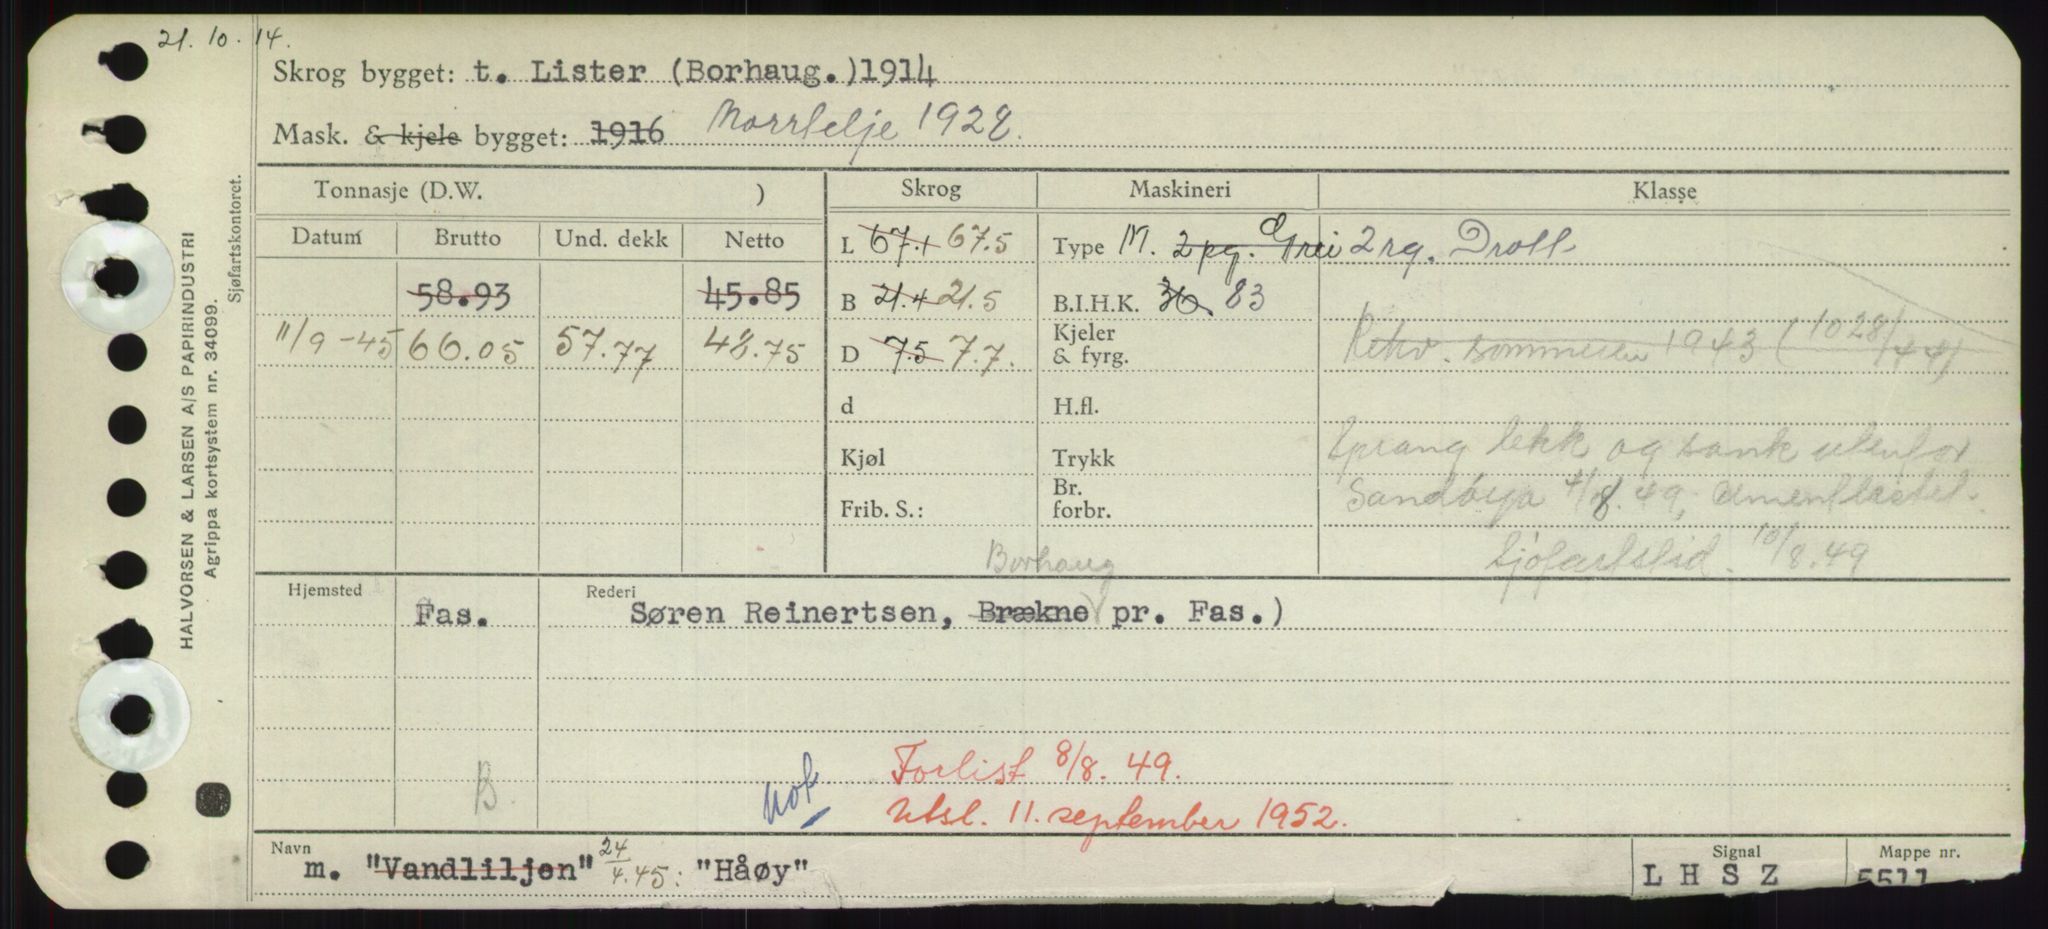 21. 10. 14.
Skrog bygget: t. Lister (Borhaug.)1914
Mask. & kjele bygget: 1916 Norrtelje 1928.
Tonnasje (D.W. ) Skrog Maskineri Klasse
Datum Brutto Und. dekk Netto L 67.1 67.5 Type M. 2 pg. Grei 2 rg. Drott
58.93 45.85 B 21.4 21.5 B.I.H.K. 36. 83
11/9-45 66.05 57.77 48.75 D 7.5 7.7. Kjeler & fyrg. Rekv. sommeren 1943 (1028/44)
d H.fl.
Kjøl Trykk Sprang lekk og sank utenfor
Frib. S.: Br. forbr. Sandøya 8.49, sementlastet.
Sjøfartstid. 10/8.49
Borhaug
Hjemsted Rederi
Fas. Søren Reinertsen, Brækne pr. Fas.)
B. nok Forlist 8/8. 49.
Utsl. 11. september 1952.
Navn Signal Mappe nr.
m. "Vandliljen" 24/4.45: "Håøy" L H S Z 5511
HALVORSEN & LARSEN A/S PAPIRINDUSTRI
Agrippa kortsystem nr. 34099.
Sjøfartskontoret.